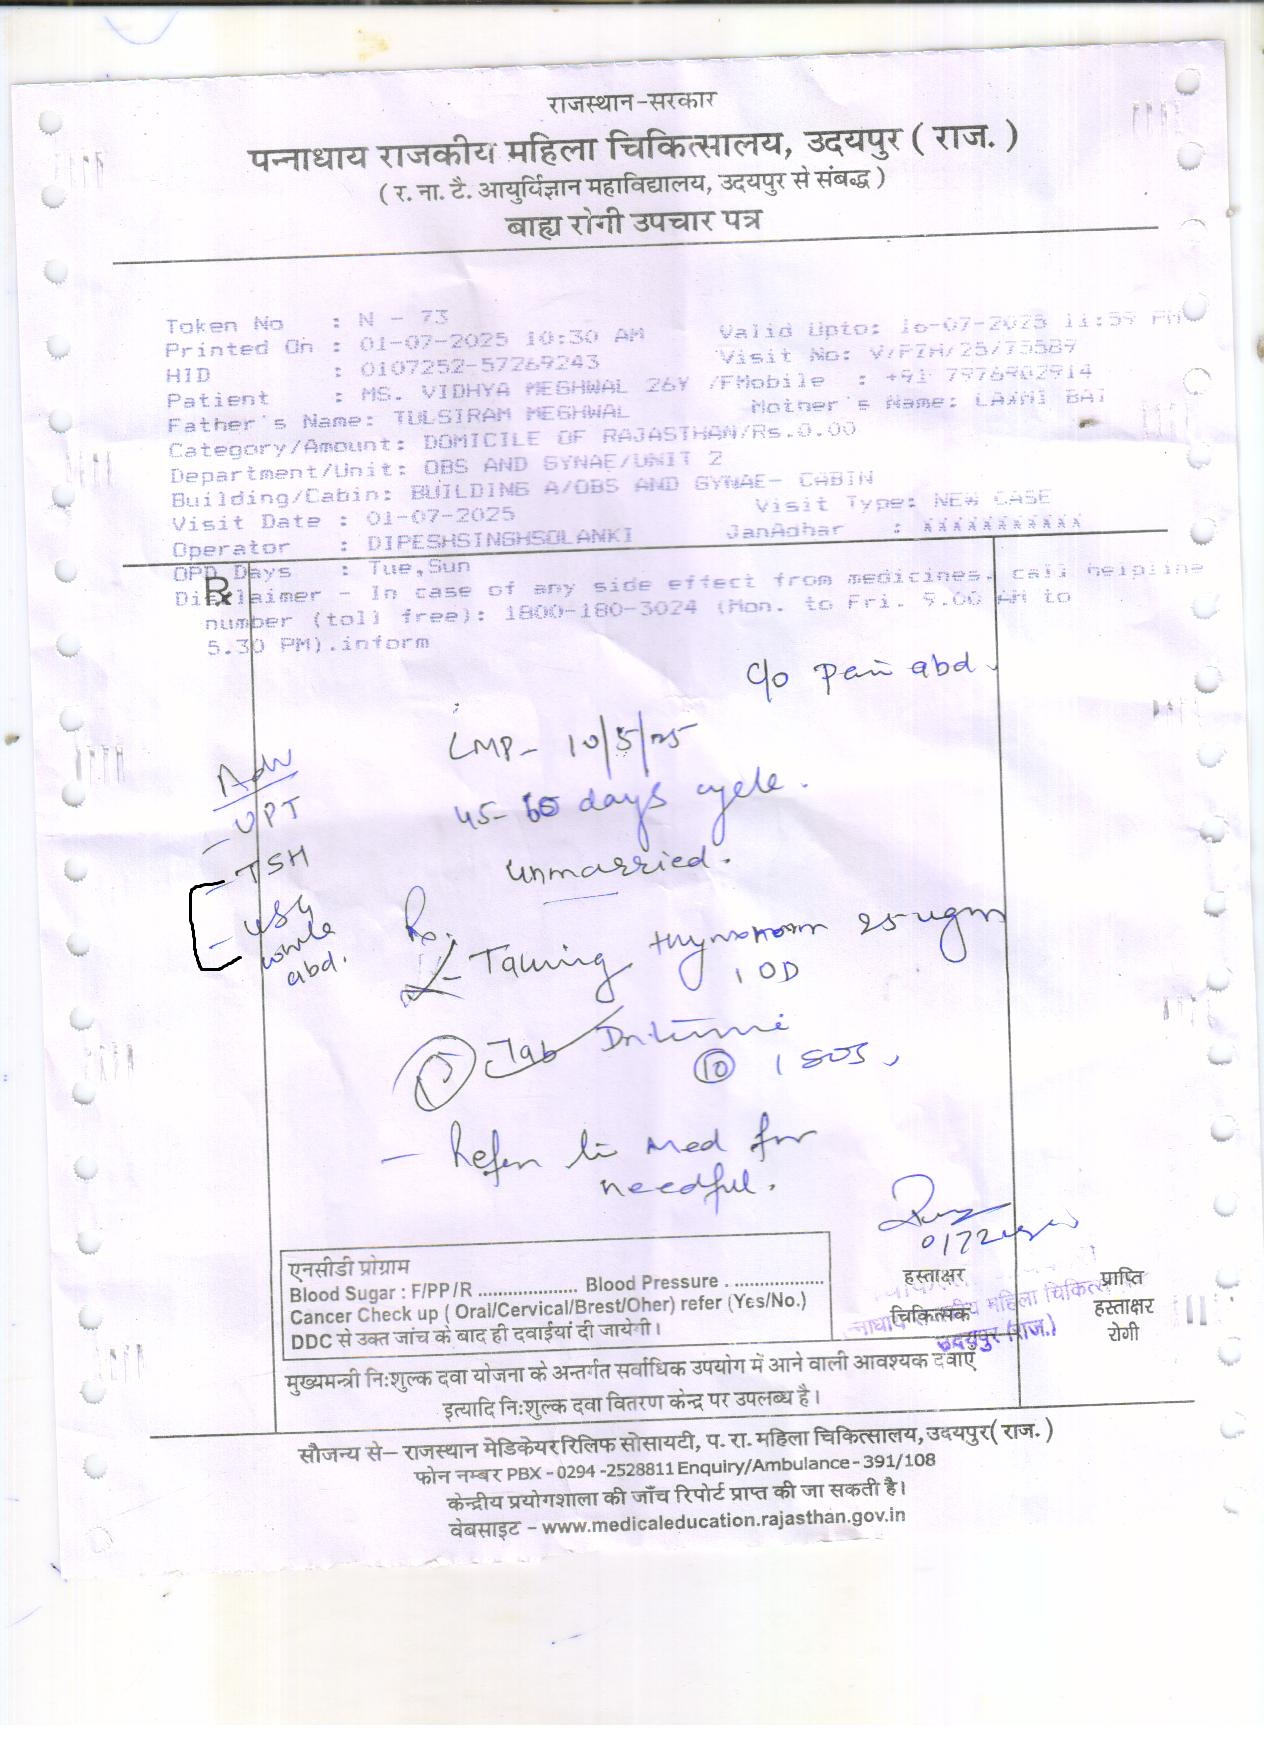 राजस्थान-सरकार
पन्नाधाय राजकीय महिला चिकित्सालय, उदयपुर ( राज. )
( र. ना. टै. आयुर्विज्ञान महाविद्यालय, उदयपुर से संबद्ध )
बाह्य रोगी उपचार पत्र
Token No : N - 73
Printed On : 01-07-2025 10:30 AM Valid Upto: 16-07-2025 11:59 PM
HID : 0107252-57269243 Visit No: V/PIH/25/75589
Patient : MS. VIDHYA MEGHWAL 26Y /F Mobile : +91 7976902914
Father's Name: TULSIRAM MEGHWAL Mother's Name: LAXMI BAI
Category/Amount: DOMICILE OF RAJASTHAN/Rs.0.00
Department/Unit: OBS AND GYNAE/UNIT 2
Building/Cabin: BUILDING A/OBS AND GYNAE- CABIN
Visit Date : 01-07-2025 Visit Type: NEW CASE
Operator : DIPESHSINGHSOLANKI JanAdhar : XXXXXXXXXXX
OPD Days : Tue,Sun
Rx
Disclaimer - In case of any side effect from medicines, call helpline
number (toll free): 1800-180-3024 (Mon. to Fri. 9.00 AM to
5.30 PM).inform
c/o pain abd.
LMP- 10/5/25
45-60 days cycle.
unmarried.
Adv
- UPT
- TSH
- USG
whole
abd.
Rx.
- Taking thyronorm 25 ugm
1 OD
Tab
10 1 SOS,
- Refer to Med for
needful.
एनसीडी प्रोग्राम
Blood Sugar : F/PP/R .................... Blood Pressure . ..................
Cancer Check up ( Oral/Cervical/Brest/Oher) refer (Yes/No.)
DDC से उक्त जांच के बाद ही दवाईयां दी जायेगी।
हस्ताक्षर
चिकित्सक
प्राप्ति
हस्ताक्षर
रोगी
महिला चिकित्स
उदयपुर (राज.)
मुख्यमन्त्री निःशुल्क दवा योजना के अन्तर्गत सर्वाधिक उपयोग में आने वाली आवश्यक दवाएं
इत्यादि निःशुल्क दवा वितरण केन्द्र पर उपलब्ध है।
सौजन्य से– राजस्थान मेडिकेयर रिलिफ सोसायटी, प. रा. महिला चिकित्सालय, उदयपुर( राज. )
फोन नम्बर PBX - 0294 -2528811 Enquiry/Ambulance - 391/108
केन्द्रीय प्रयोगशाला की जाँच रिपोर्ट प्राप्त की जा सकती है।
वेबसाइट – www.medicaleducation.rajasthan.gov.in